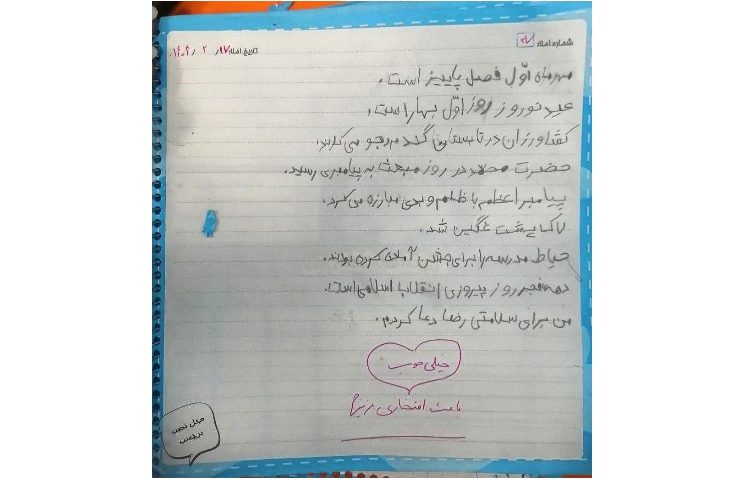 شماره املاء: ۲۷
تاریخ املاء: ۱۷ / ۲ / ۱۴۰۴
مهرماه اوّل فصل پاییز است.
عید نوروز روز اوّل بهار است.
کشاورزان در تابستان گندم و جو می‌کارند.
حضرت محمد در روز مبعث به پیامبری رسید.
پیامبر اعظم با ظلم و بدی مبارزه می‌کرد.
لاک‌پشت غمگین شد.
حیاط مدرسه را برای جشن آماده کرده بودند.
دهه فجر روز پیروزی انقلاب اسلامی است.
من برای سلامتی رضا دعا کردم.
خیلی خوب
باعث افتخاری عزیزم
محل نصب
برچسب